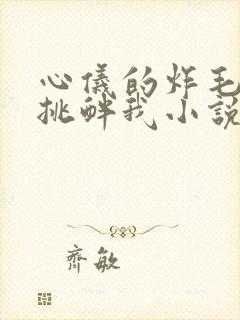 心儀的炸毛
挑衅我小說
齊敏